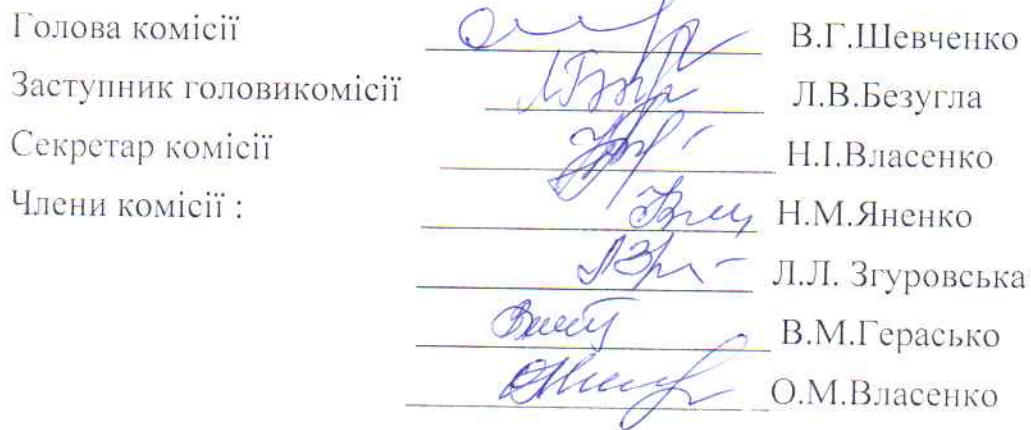 Голова комісії В.Г.Шевченко
Заступник головикомісії Л.В.Безугла
Секретар комісії Н.І.Власенко
Члени комісії : Н.М.Яненко
Л.Л. Згуровська
В.М.Герасько
О.М.Власенко